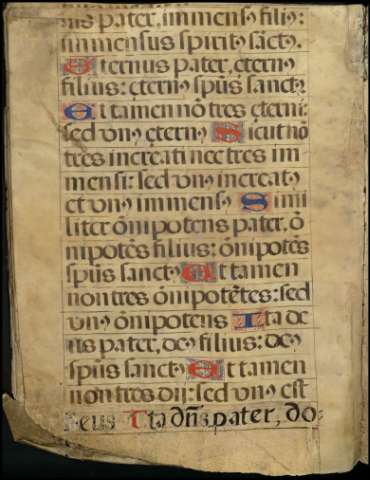 us pater, immens⁹ fili⁹:
immensus spirit⁹ sāct⁹.
Eternus pater, ętern⁹
filius: ętern⁹ spūs sanct⁹
Et tamen nō tres ęterni:
sed vn⁹ ętern⁹ Sicut nō
tres increati nec tres im
mensi: sed vn⁹ increat⁹
et vn⁹ immens⁹ Simi
liter ōnipotens pater, ō
nipotēs filius: ōnipotēs
spūs sanct⁹ Et tamen
non tres ōnipotētes: sed
vn⁹ ōnipotens Ita de
us pater, de⁹ filius: de⁹
spūs sanct⁹ Et tamen
non tres dij: sed vn⁹ est
deus Ita dn̄s pater, do